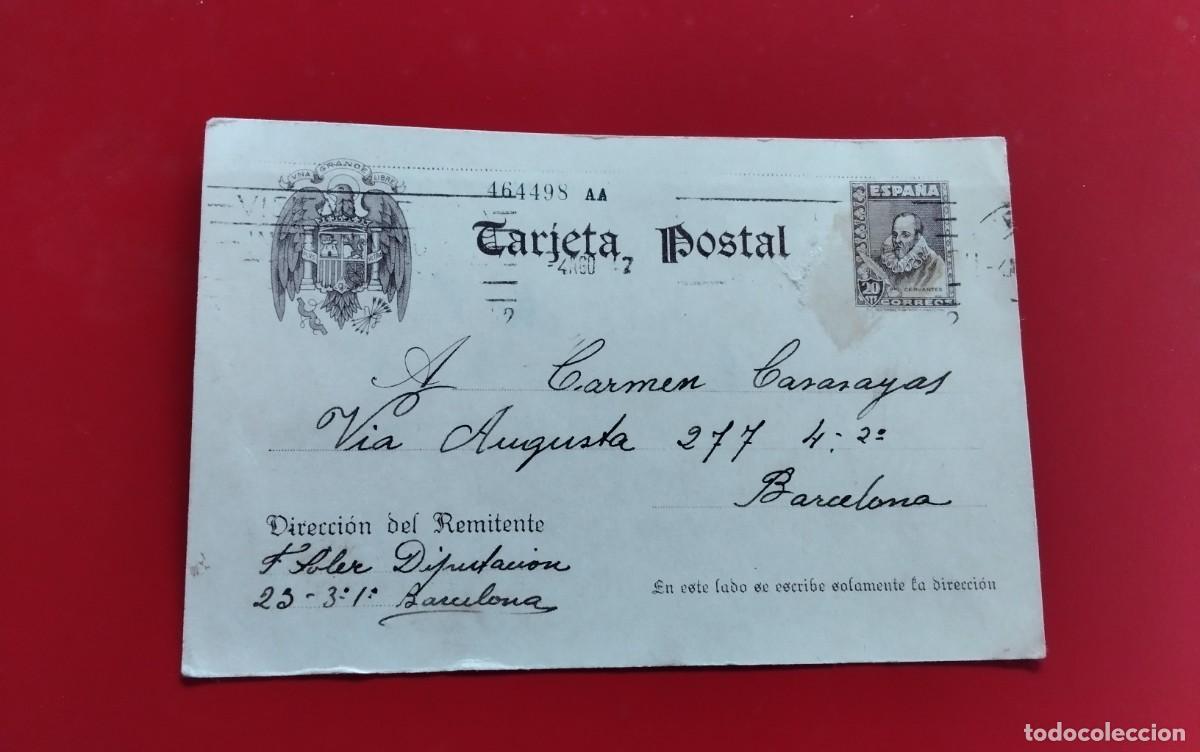 UNA GRANDE LIBRE
464498 AA
ESPAÑA
Tarjeta Postal
-4 AGO
20
CERVANTES
CORREOS
A Carmen Casasayas
Via Augusta 277 4º 2º
Barcelona
Dirección del Remitente
F Soler Diputacion
23 - 3º 1º Barcelona
En este lado se escribe solamente la dirección
todocoleccion